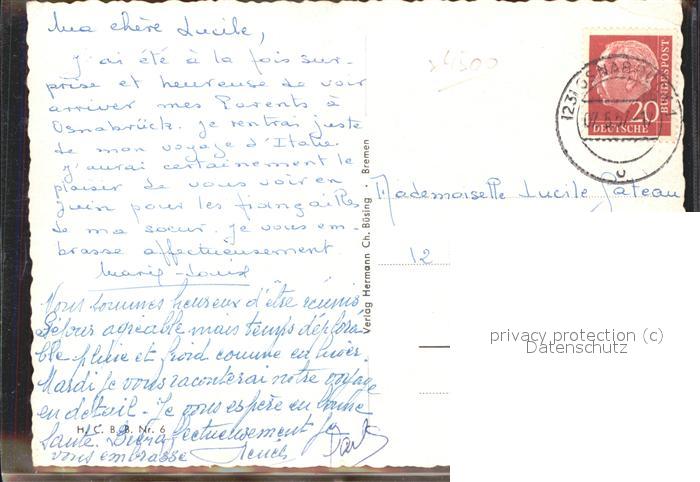 Ma chère Lucile,
J'ai été à la fois sur-
prise et heureuse de voir
arriver mes Parents à
Osnabrück. Je rentrai juste
de mon voyage d'Italie.
J'aurai certainement le
plaisir de vous voir en
Juin pour les fiançailles
de ma soeur. Je vous em-
brasse affectueusement.
Marie-Louise
Nous sommes heureux d'être réunis
Séjour agréable mais temps déplora
ble pluie et froid comme en hiver.
Mardi je vous raconterai notre voyage
en détail - Je vous espère en bonne
santé. Bien affectueusement je
vous embrasse
H. C. B. B. Nr. 6
Verlag Hermann Ch. Büsing · Bremen
x4500
20
DEUTSCHE
BUNDESPOST
(23) OSNABRÜCK
Mademoiselle Lucile Gateau
12
privacy protection (c)
Datenschutz